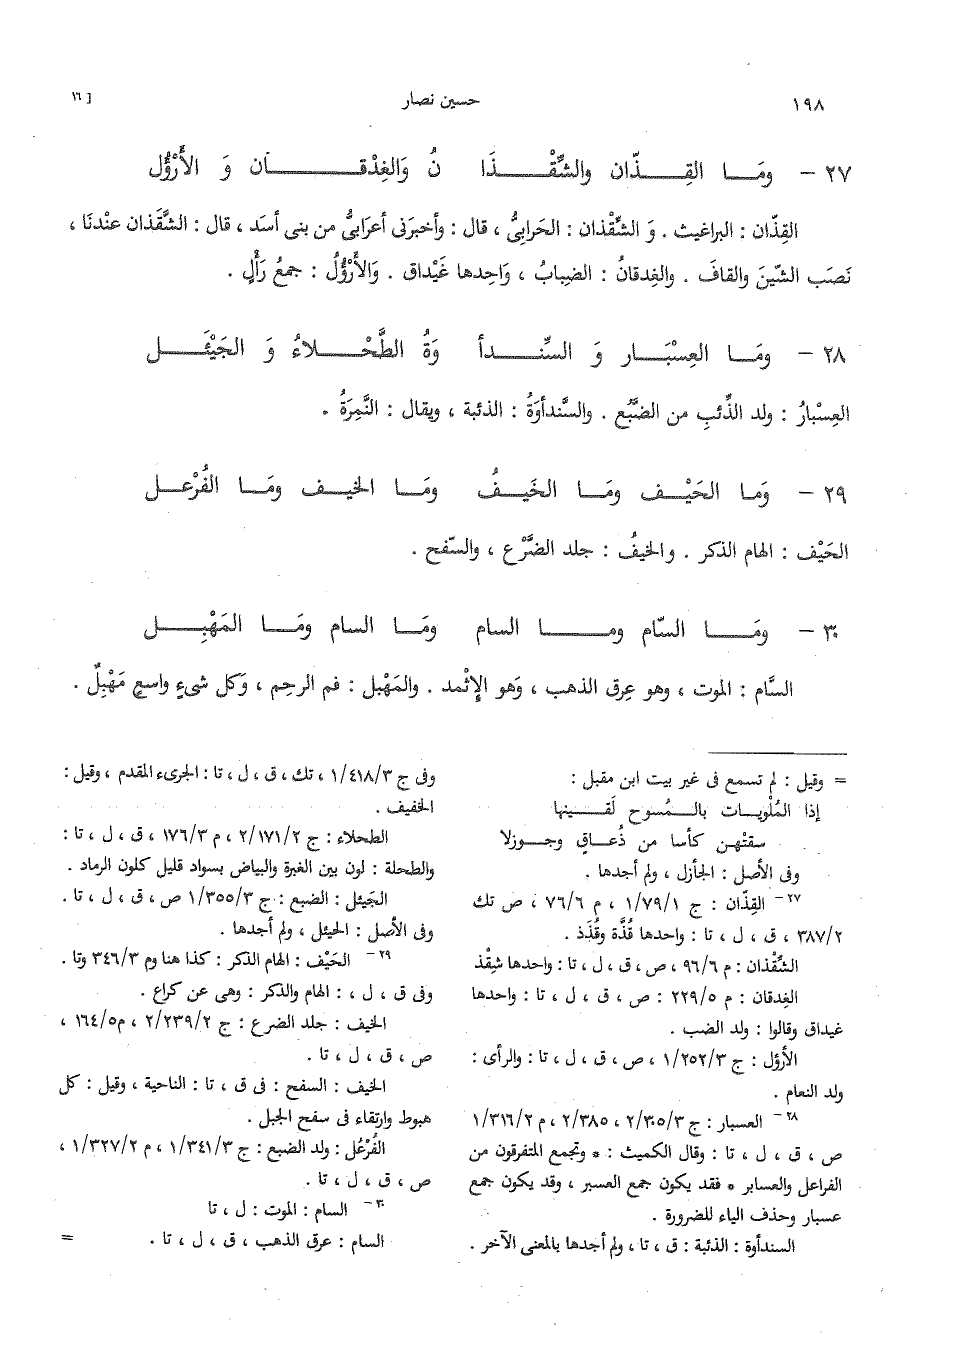 ١٩٨
حسين نصار
[ ١٦
٢٧ – ومَا القِذّان والشِّقْذَا نُ وَالغِذْقَان وَ الأَرْؤُل
القِذّان : البراغيث . وَ الشِّقْذان : الحَرابىُّ ، قال : وأخبرَنى أعرابىٌّ من بنى أسَد ، قال : الشَّقَذان عندنَا ،
نَصَب الشّينَ والقافَ . والغِدقانُ : الضِبابُ ، وَاحِدها غَيْداق . وَالأَرْؤُلُ : جمعُ رَأْلٍ .
٢٨ – ومَا العِسْبَار وَ السِّنْدأ وَةُ الطَّحْلاءُ وَ الجَيْئَل
العِسْبارُ : ولد الذِّئبِ من الضَّبُع . والسَّندأوَةُ : الذئبة ، ويقال : النَّمِرَةُ .
٢٩ – وَما الحَيْف ومَا الخَيفُ ومَا الخيف ومَا الفُرْعل
الحَيْف : الهام الذكر . والخيفُ : جلد الضَّرْع ، والسّفح .
٣٠ – ومَا السّام ومـا السام ومَا السام ومَا المَهْبِل
السَّام : الموت ، وهو عِرق الذهب ، وَهو الإثْمد . والمَهْبل : فم الرحِم ، وَكل شىءٍ واسعٍ مَهْبِلٌ .
= وقيل : لم تسمع فى غير بيت ابن مقبل :
إذا المُلْوِيات بالمُسوح لَقينها
سقتْهن كأسا من ذُعاقٍ وجوزلا
وفى الأصل : الجأزل ، ولم أجدها .
٢٧– القِذّان : ج ١/٧٩/١ ، م ٧٦/٦ ، ص تك
٣٨٧/٢ ، ق ، ل ، تا : واحدها قُذَّة وقُذَذ .
الشَّقْذان : م ٩٦/٦ ، ص ، ق ، ل ، تا : واحدها شِقْذ
الغِدقان : م ٢٢٩/٥ : ص ، ق ، ل ، تا : واحدها
غيداق وقالوا : ولد الضب .
الأرؤل : ج ١/٢٥٢/٣ ، ص ، ق ، ل ، تا : والرأى :
ولد النعام .
٢٨– العسبار : ج ٢/٣٠٥/٣ ، ٢/٣٨٥ ، م ١/٣١٦/٢
ص ، ق ، ل ، تا : وقال الكميت : * وتجمع المتفرقون من
الفراعل والعسابر * فقد يكون جمع العسبر ، وقد يكون جمع
عسبار وحذف الياء للضرورة .
السندأوة : الذئبة : ق ، تا ، ولم أجدها بالمعنى الآخر .
وفى ج ١/٤١٨/٣ ، تك ، ق ، ل ، تا : الجرىء المقدم ، وقيل :
الخفيف .
الطحلاء : ج ٢/١٧١/٢ ، م ١٧٦/٣ ، ق ، ل ، تا :
والطحلة : لون بين الغبرة والبياض بسواد قليل كلون الرماد .
الجَيئل : الضبع : ج ١/٣٥٥/٣ ص ، ق ، ل ، تا .
وفى الأصل : الحيئل ، ولم أجدها .
٢٩– الحَيْف : الهام الذكر : كذا هنا وم ٣٤٦/٣ وتا .
وفى ق ، ل ، : الهام والذكر : وهى عن كراع .
الخيف : جلد الضرع : ج ٢/٢٣٩/٢ ، م ١٦٤/٥ ،
ص ، ق ، ل ، تا .
الخيف : السفح : فى ق ، تا : الناحية ، وقيل : كل
هبوط وارتقاء فى سفح الجبل .
الفُرْعُل : ولد الضبع : ج ١/٣٤١/٣ ، م ١/٣٢٧/٢ ،
ص ، ق ، ل ، تا .
٣٠– السام : الموت : ل ، تا
السام : عرق الذهب ، ق ، ل ، تا . =